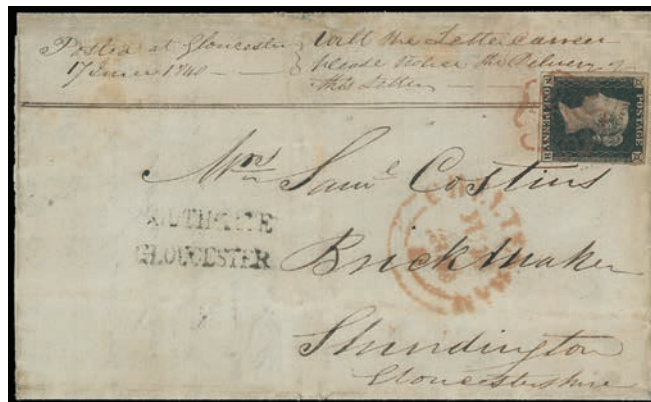 Posted at Gloucester
17 June 1840
Will the Letter carrier
please notice the Delivery of
this Letter
POSTAGE
ONE PENNY
Mrs Saml Costins
GLOUCESTER
Brick Maker
Shurdington
Gloucestershire